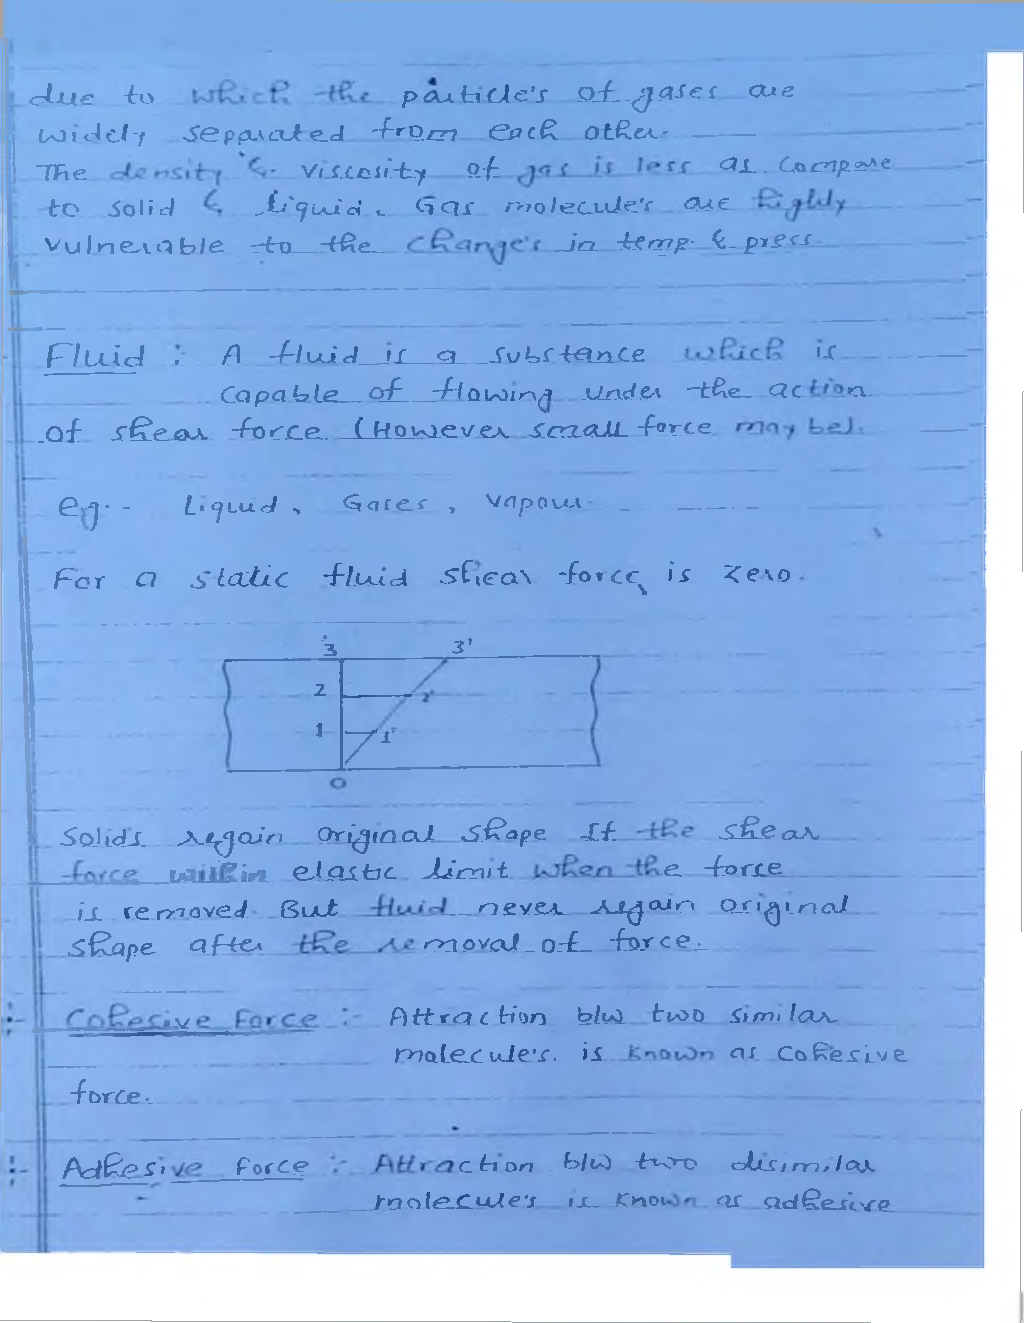 due to which the particle's of gases are
widely separated from each other.
The density & viscosity of gas is less as compare
to solid & liquid. Gas molecule's are highly
vulnerable to the change's in temp. & press.
Fluid :- A fluid is a substance which is
capable of flowing under the action
of shear force. (However small force may be).
e.g. - Liquid, Gases, Vapour.
For a static fluid shear force is zero.
3 3'
2 2'
1 1'
0
Solid's regain original shape If the shear
force within elastic limit when the force
is removed. But fluid never regain original
shape after the removal of force.
:- Cohesive Force :- Attraction b/w two similar
molecule's. is known as cohesive
force.
:- Adhesive Force :- Attraction b/w two disimilar
molecule's is known as adhesive